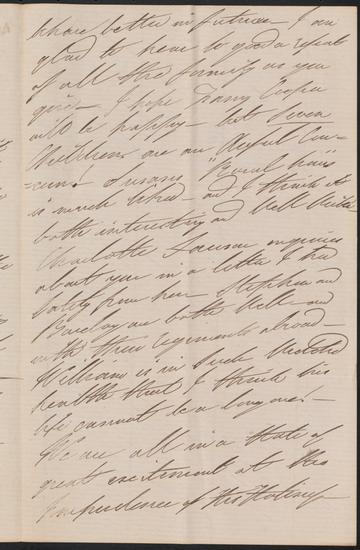 behave better in future I am
glad to hear so good a report
of all the family as you
give — I hope Fanny Cooper
will be happy — but seven
Children are an Awful Con-
=cern! Susans "Rural hours"
is much liked — and I think it
both interesting and Well Written
Charlotte Lawson enquires
about you in a letter I had
lately from her Stephen and
Barclay are both Well and
with their regiments abroad —
William is in such wretched
health that I think his
life cannot be a long one. —
We are all in a State of
great excitement at the
Impudence of His Holiness